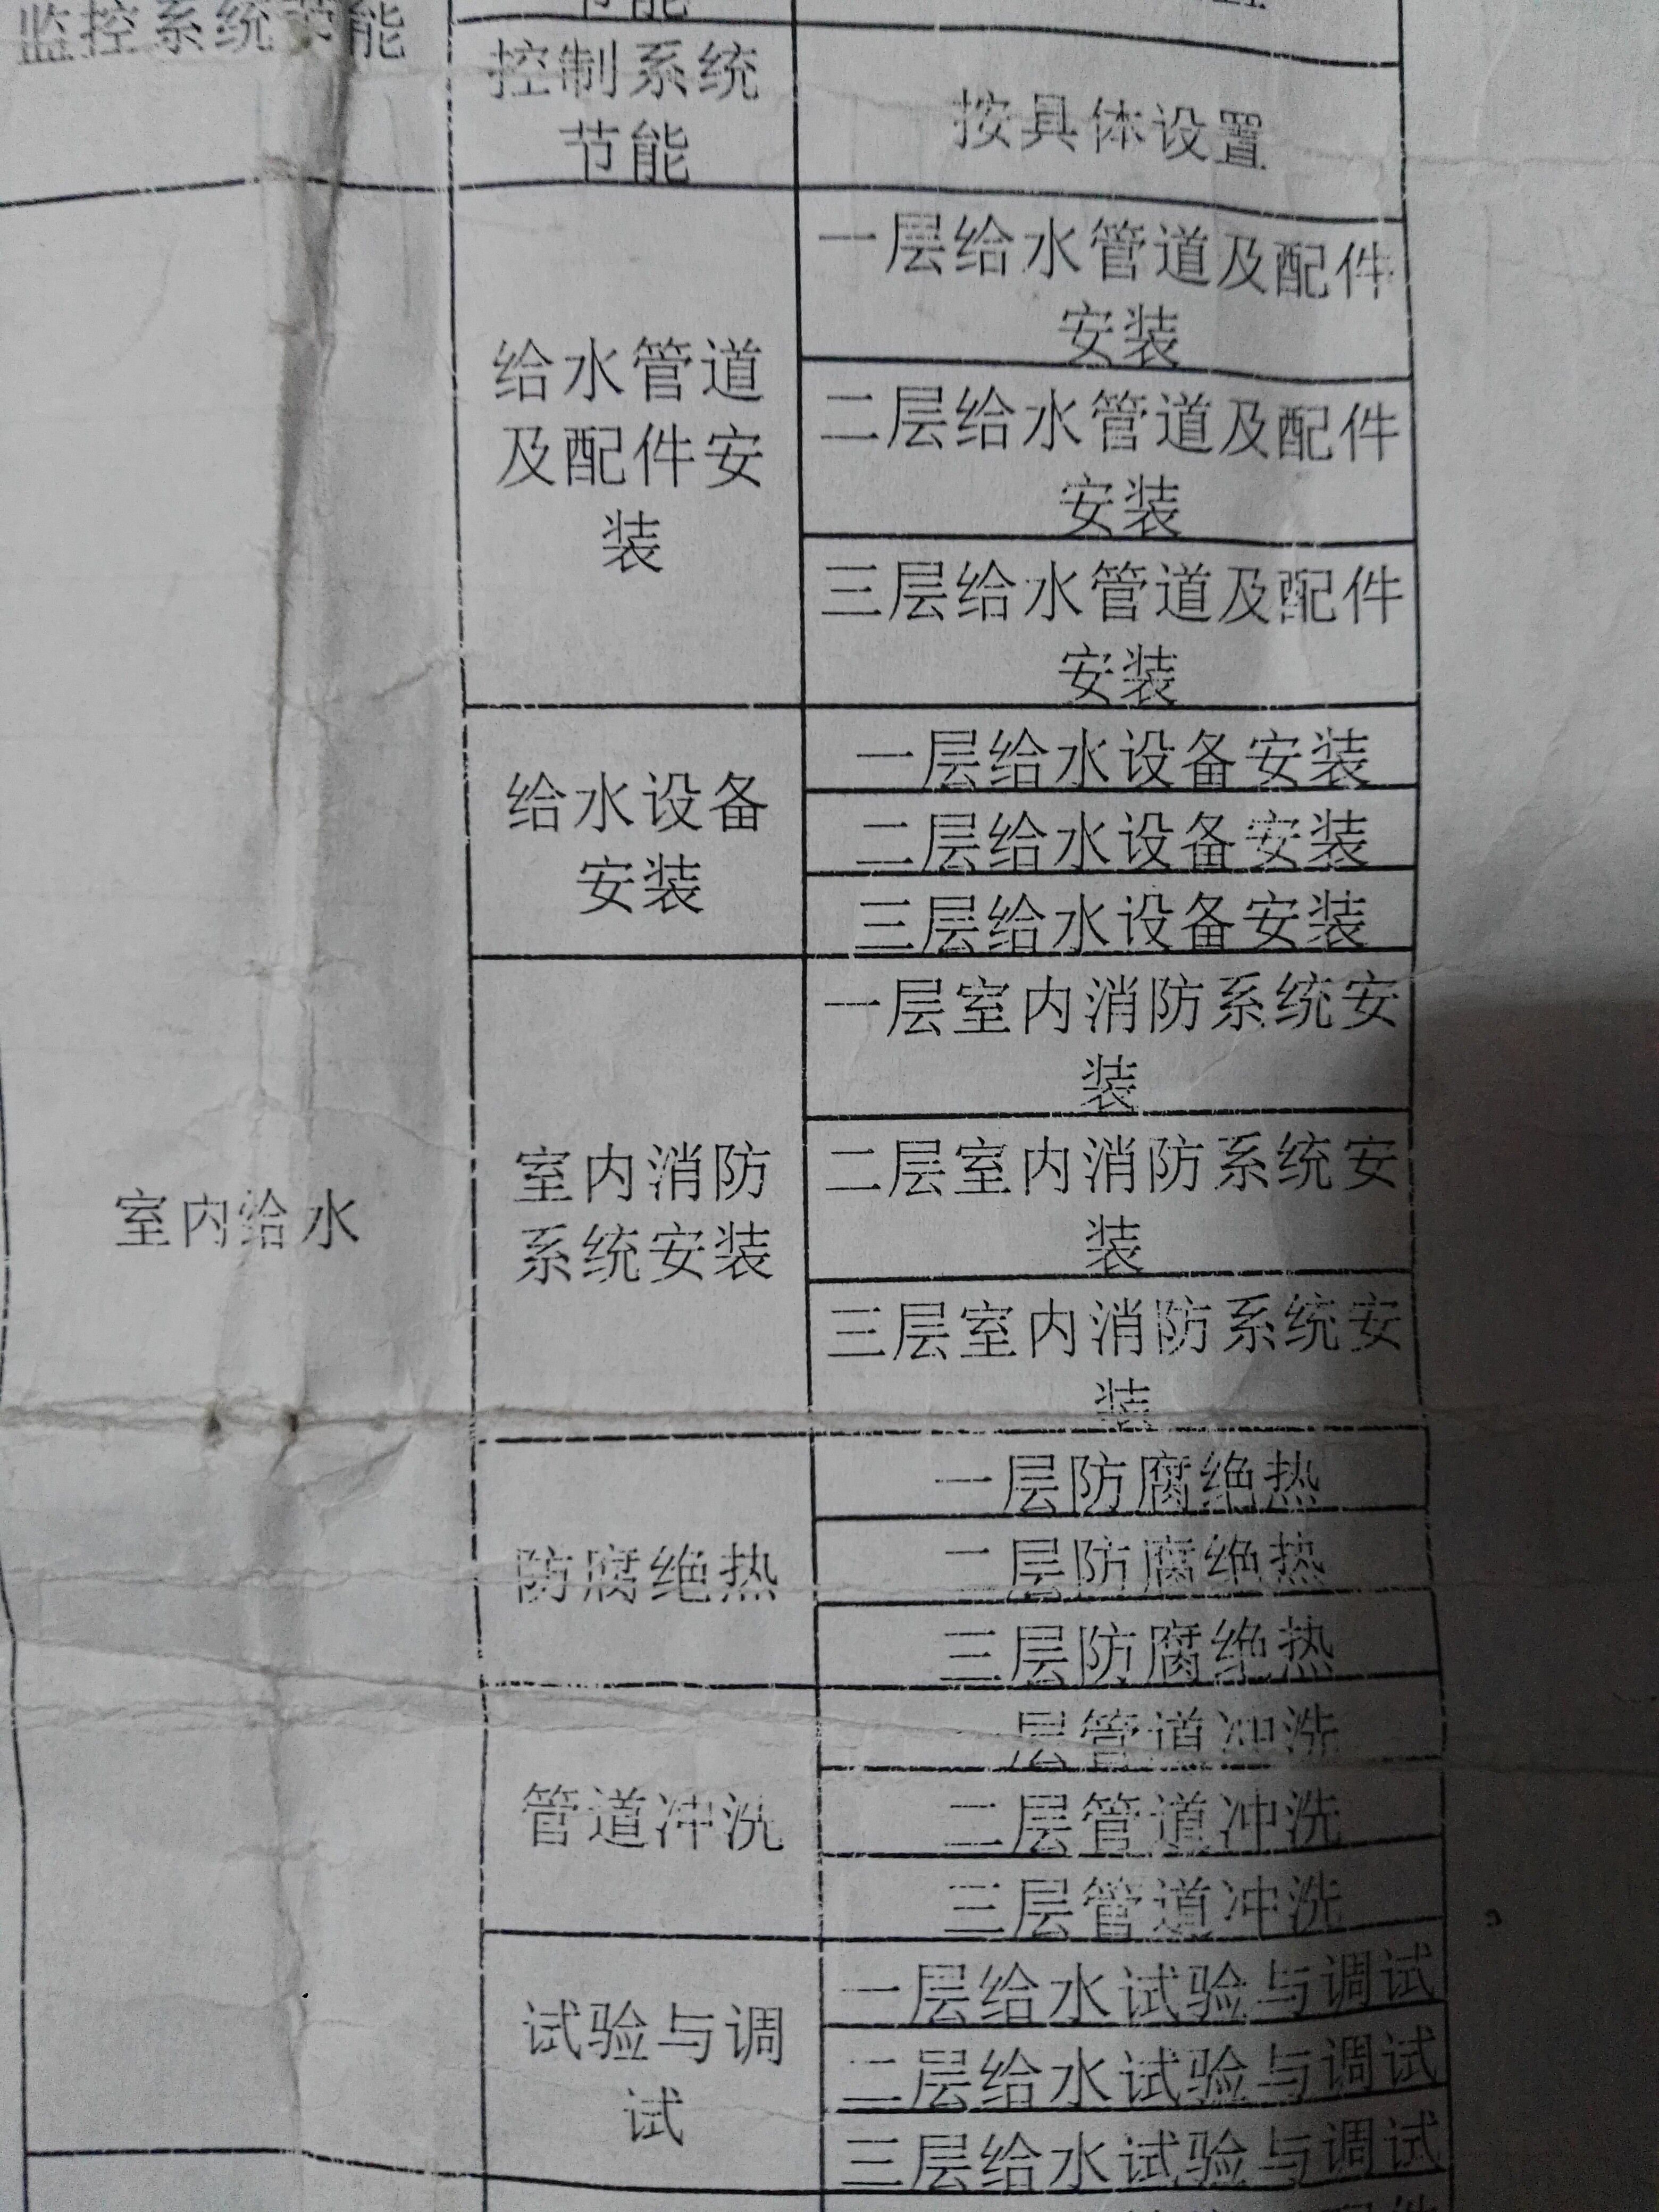 监控系统节能
控制系统
节能
按具体设置
室内给水
给水管道
及配件安
装
一层给水管道及配件
安装
二层给水管道及配件
安装
三层给水管道及配件
安装
给水设备
安装
一层给水设备安装
二层给水设备安装
三层给水设备安装
室内消防
系统安装
一层室内消防系统安
装
二层室内消防系统安
装
三层室内消防系统安
装
防腐绝热
一层防腐绝热
二层防腐绝热
三层防腐绝热
管道冲洗
一层管道冲洗
二层管道冲洗
三层管道冲洗
试验与调
试
一层给水试验与调试
二层给水试验与调试
三层给水试验与调试